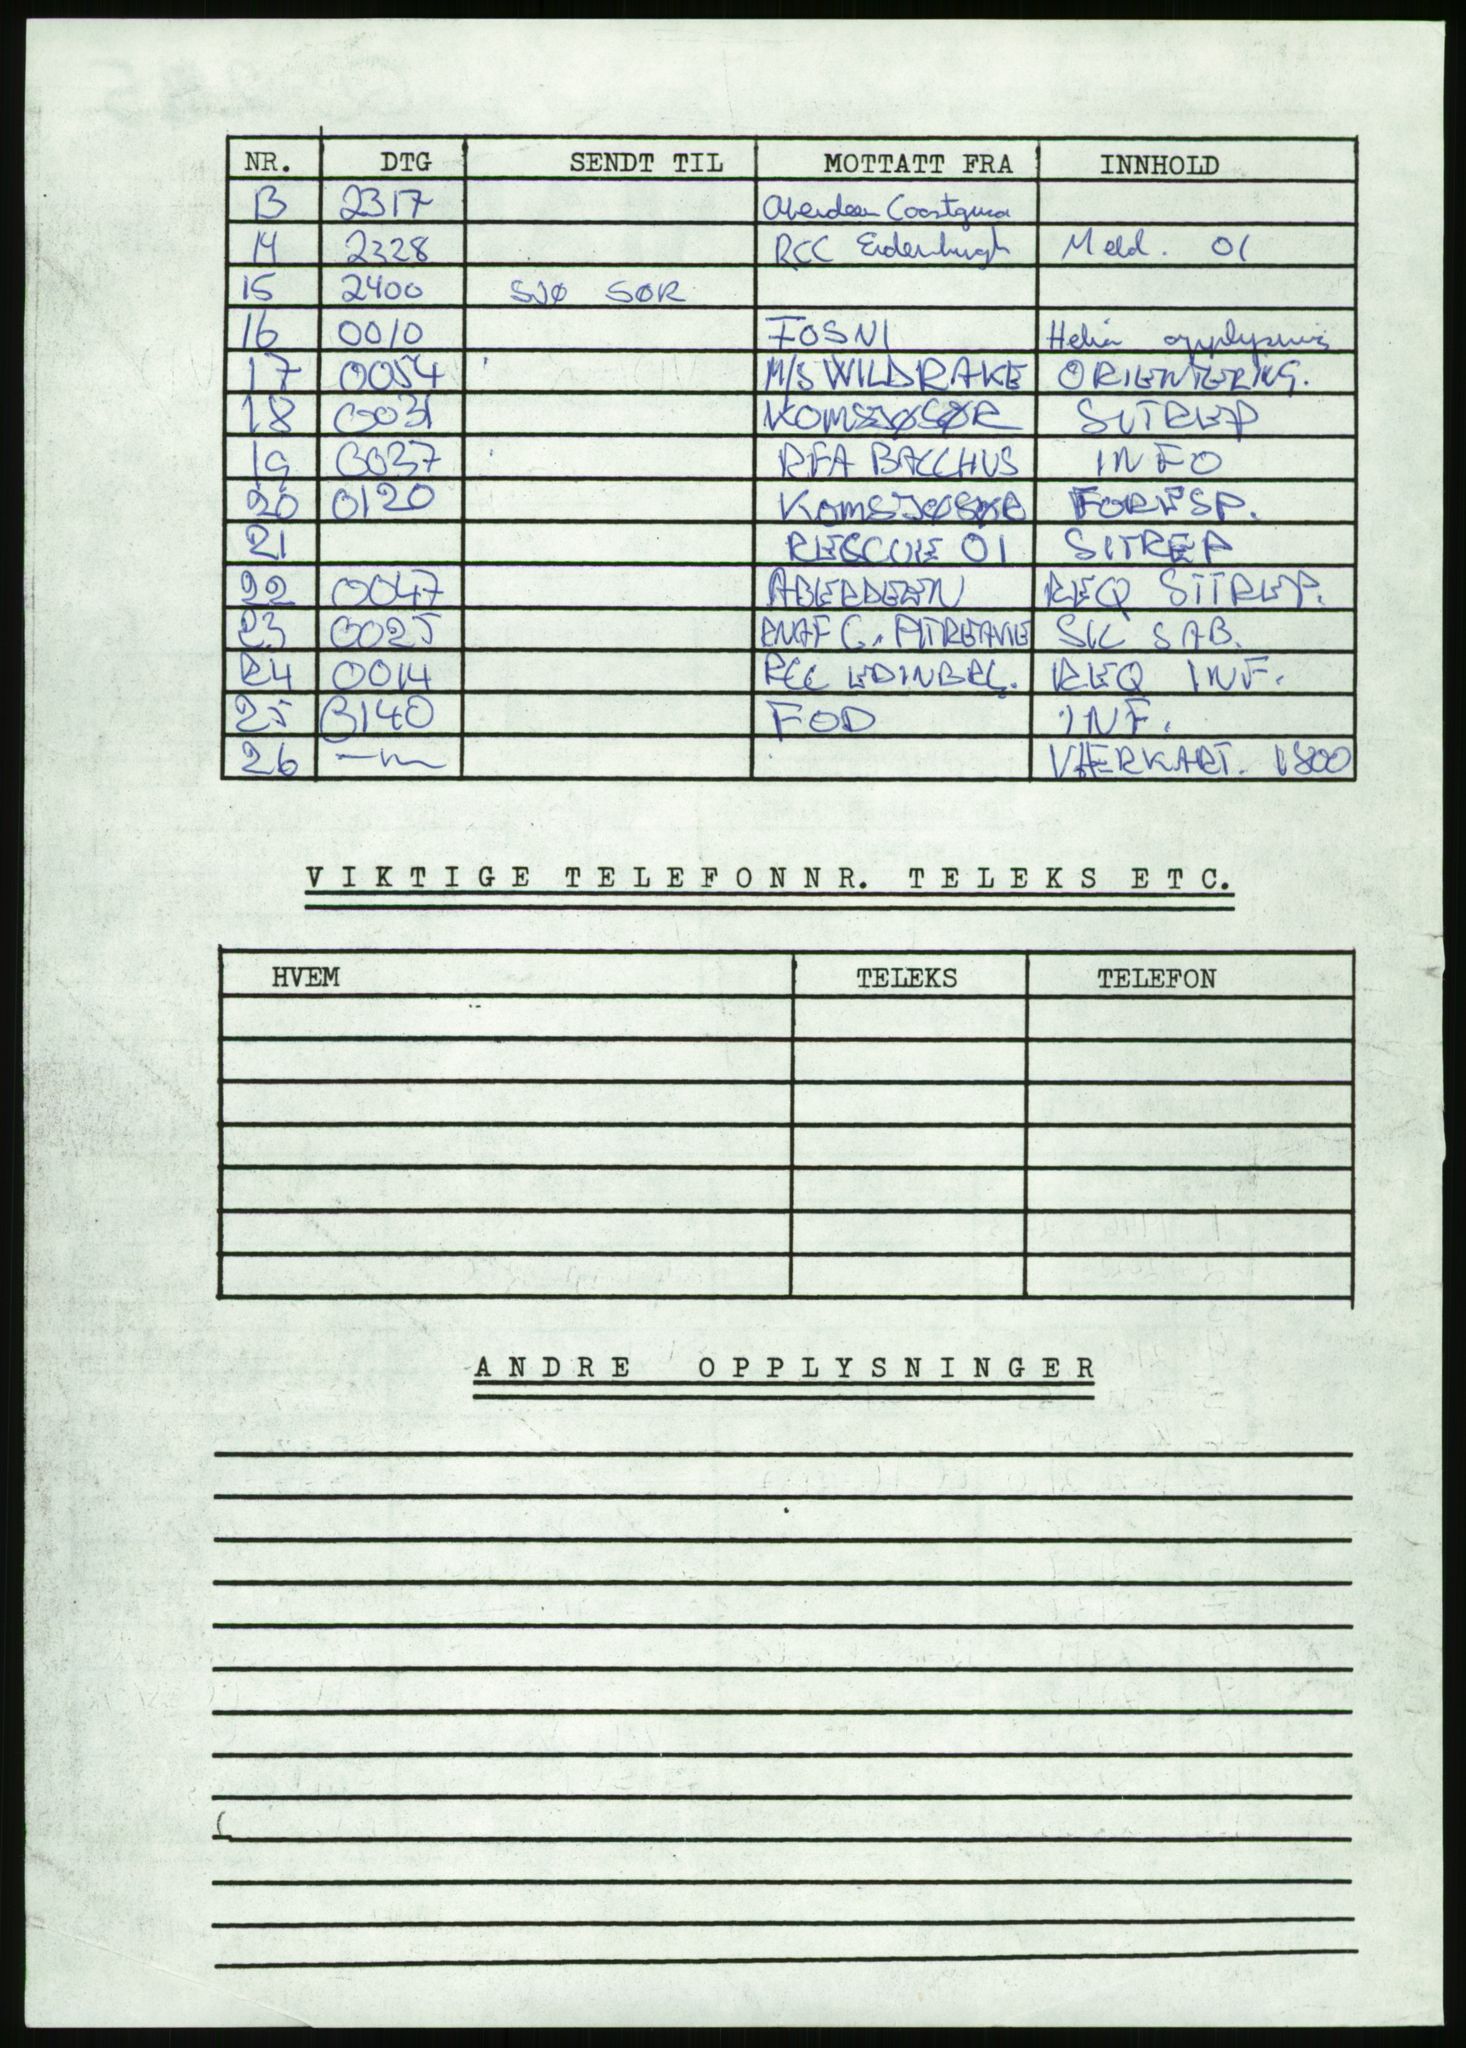 NR. DTG SENDT TIL MOTTATT FRA INNHOLD
13 2317 Aberdeen Coastguard
14 2328 RCC Edenburgh Meld. 01
15 2400 SJØ SØR
16 0010 FOSNI Heli opplysning
17 0054 M/S WILDRAKE ORIENTERING.
18 0031 KOMSJØSØR SITREP
19 0037 RFA BACCHUS INFO
20 0120 KOMSJØSØR FORESP.
21 RESCUE 01 SITREP
22 0047 ABERDEEN REQ SITREP.
23 0025 PITREAVIE SAB.
24 0014 RCC EDINBRG. REQ INF.
25 0140 FOD INF.
26 —"— VÆRKART. 1800
VIKTIGE TELEFONNR. TELEKS ETC.
HVEM TELEKS TELEFON
ANDRE OPPLYSNINGER